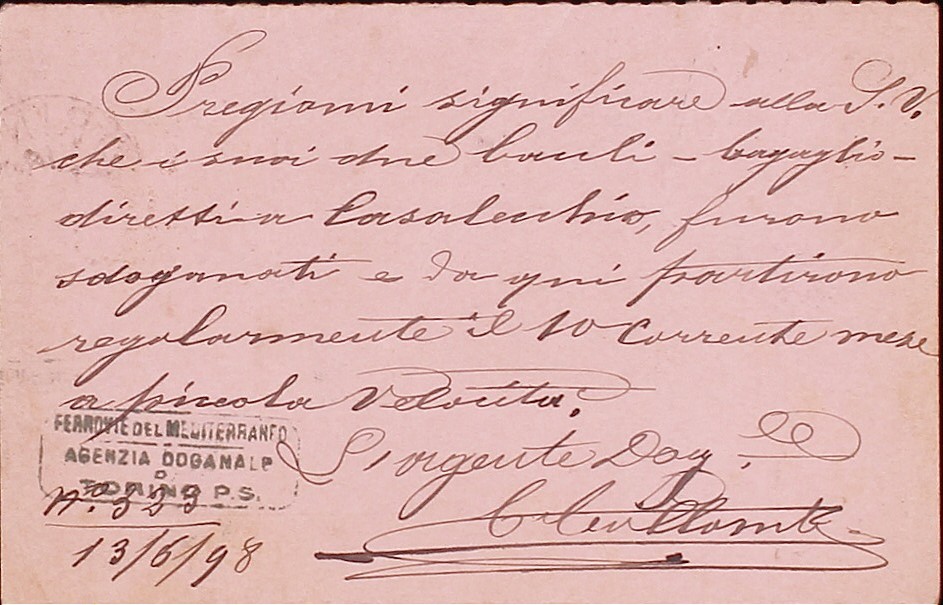 Pregiomi significare alla S. V.
che i suoi due bauli - bagaglio -
diretti a Casalecchio, furono
sdoganati e da qui partirono
regolarmente il 10 corrente mese
a piccola velocità.
L'agente Dog.
FERROVIE DEL MEDITERRANEO
AGENZIA DOGANALE
TORINO P.S.
N.° 323
13/6/98